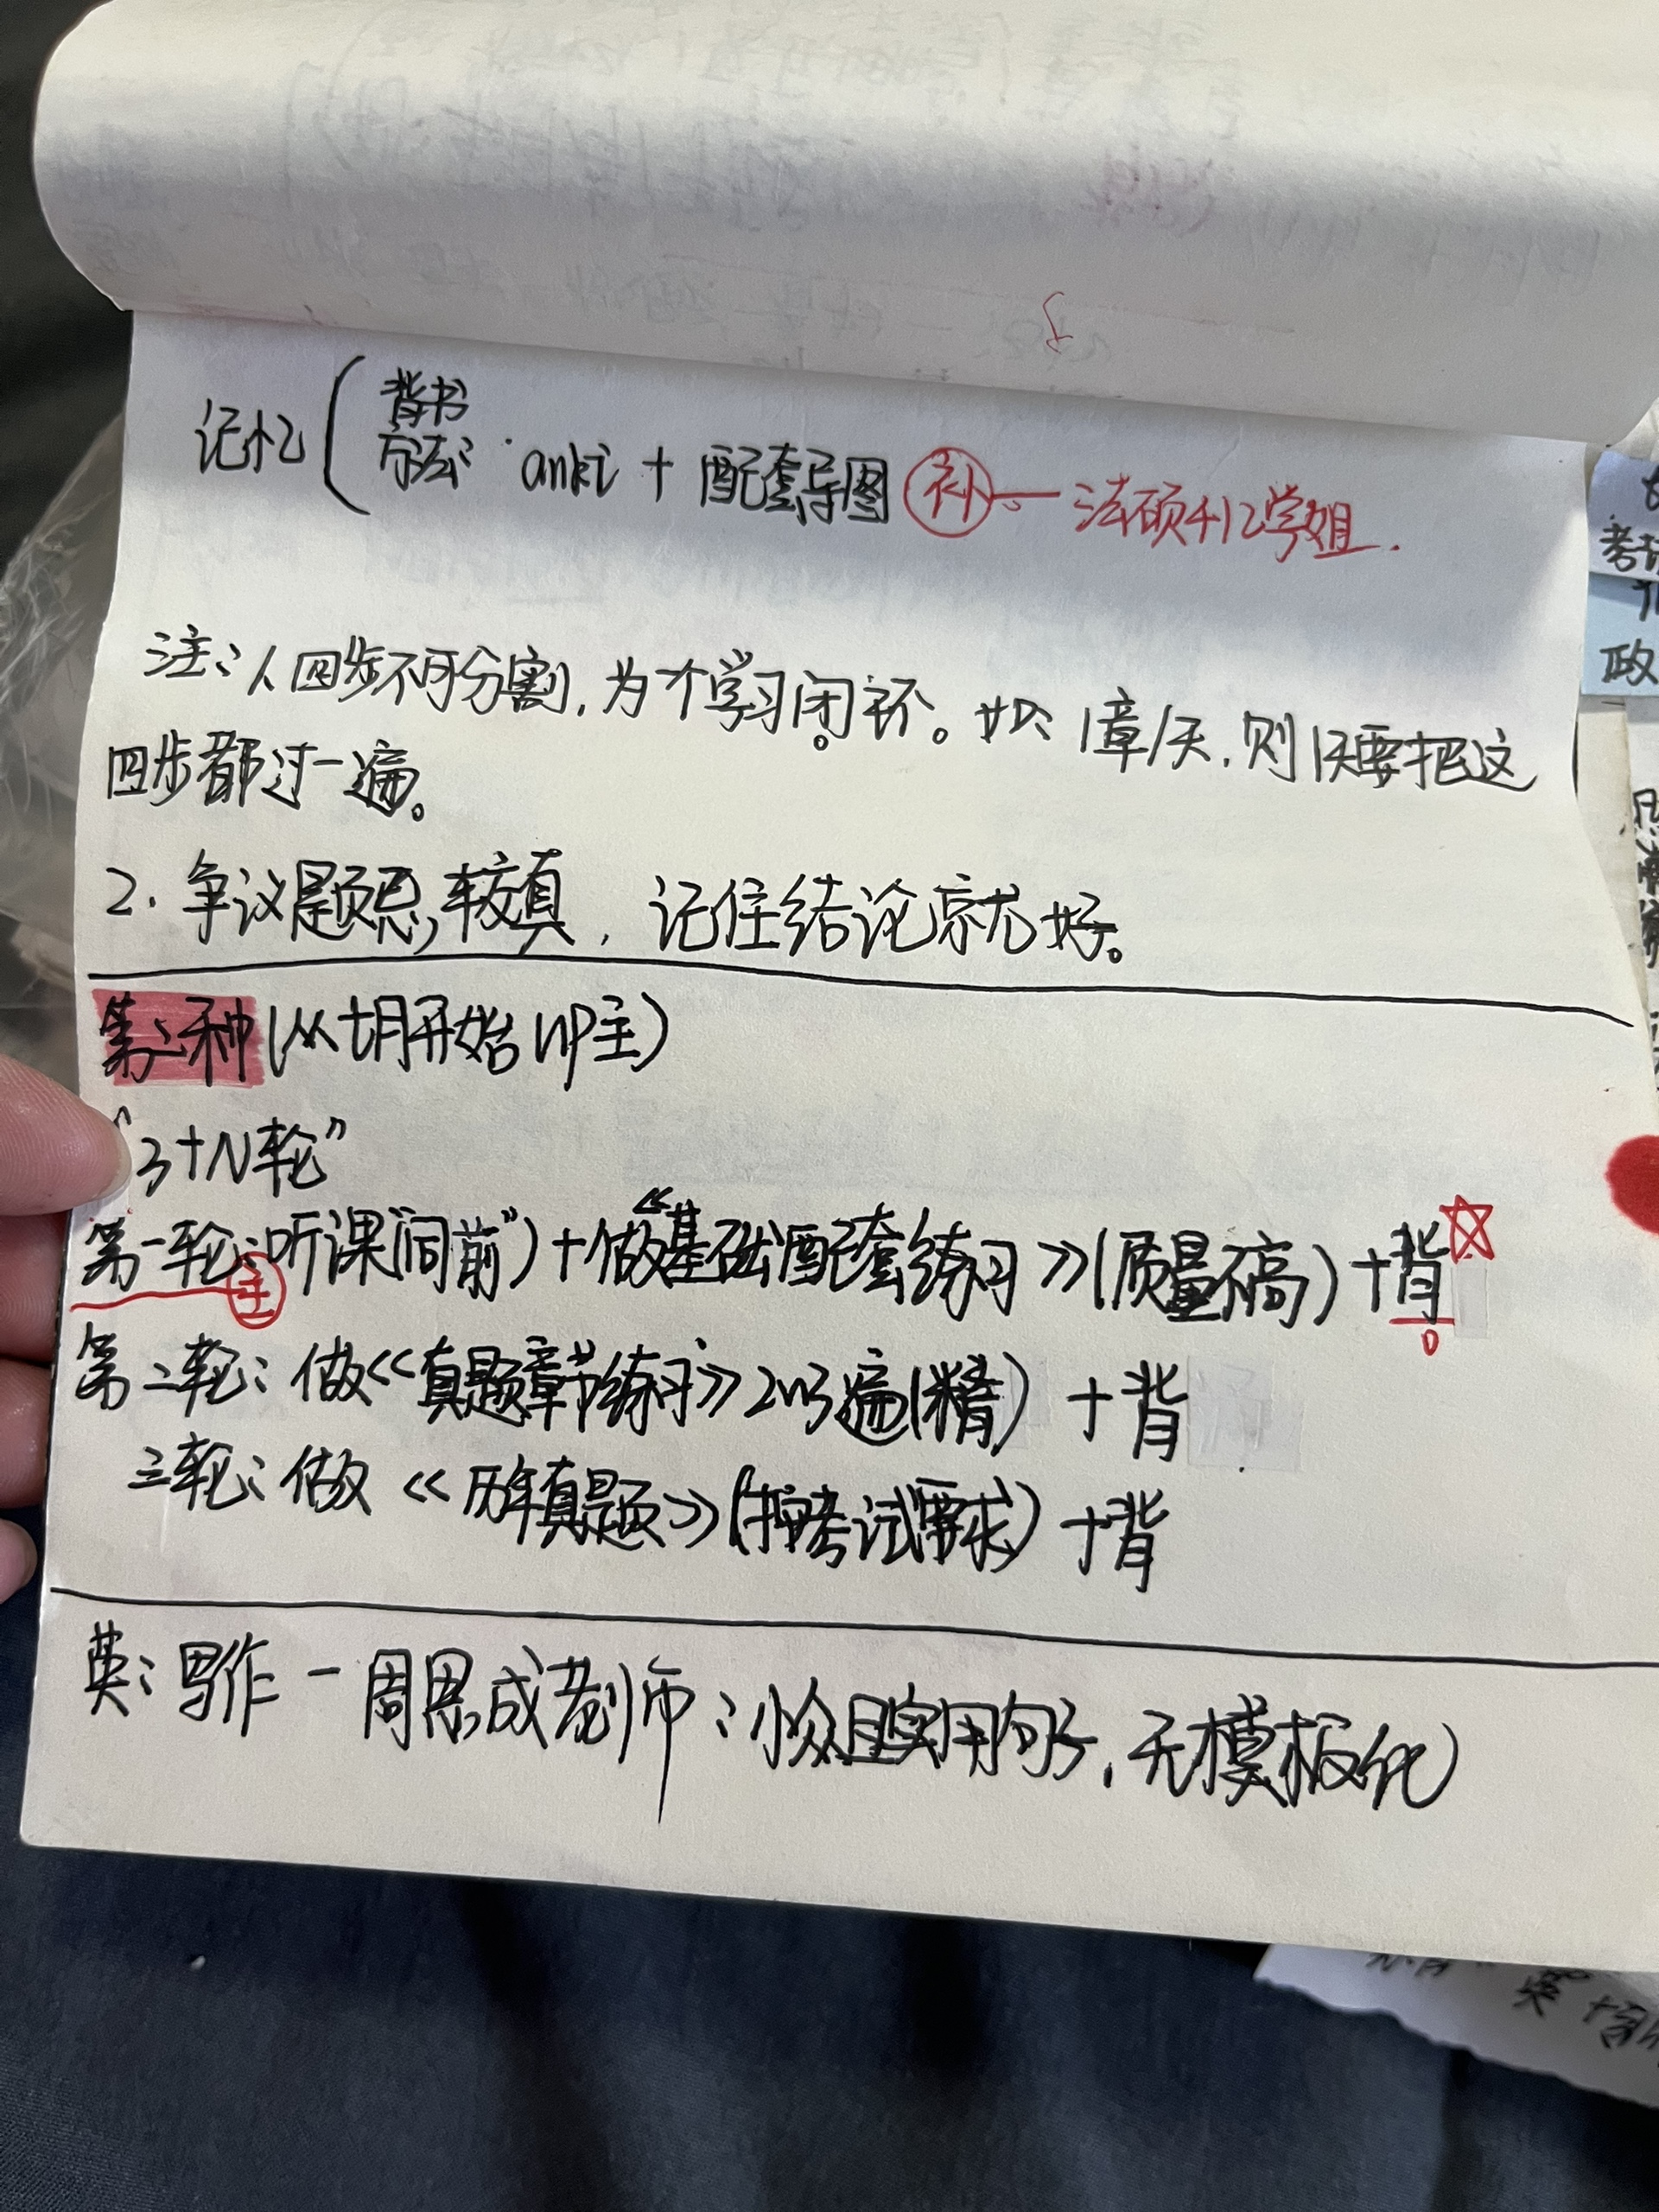 记忆( 背书方法: anki + 配套导图 补 — 法硕千亿学姐.
注:1.四步不可分割,为个学习闭环。如:1章/天,则1天要把这
四步都过一遍。
2. 争议题忌较真,记住结论就好。
第二种(从七月开始 up主)
“3+N轮”
第一轮:听课(“同前”)+做《基础配套练习》(质量不高)+背
主
第二轮:做《真题章节练习》2~3遍(精)+背
三轮:做《历年真题》(按考试要求)+背
英:写作 - 周思成老师:小众且实用句子,无模板化)
考研
政
英